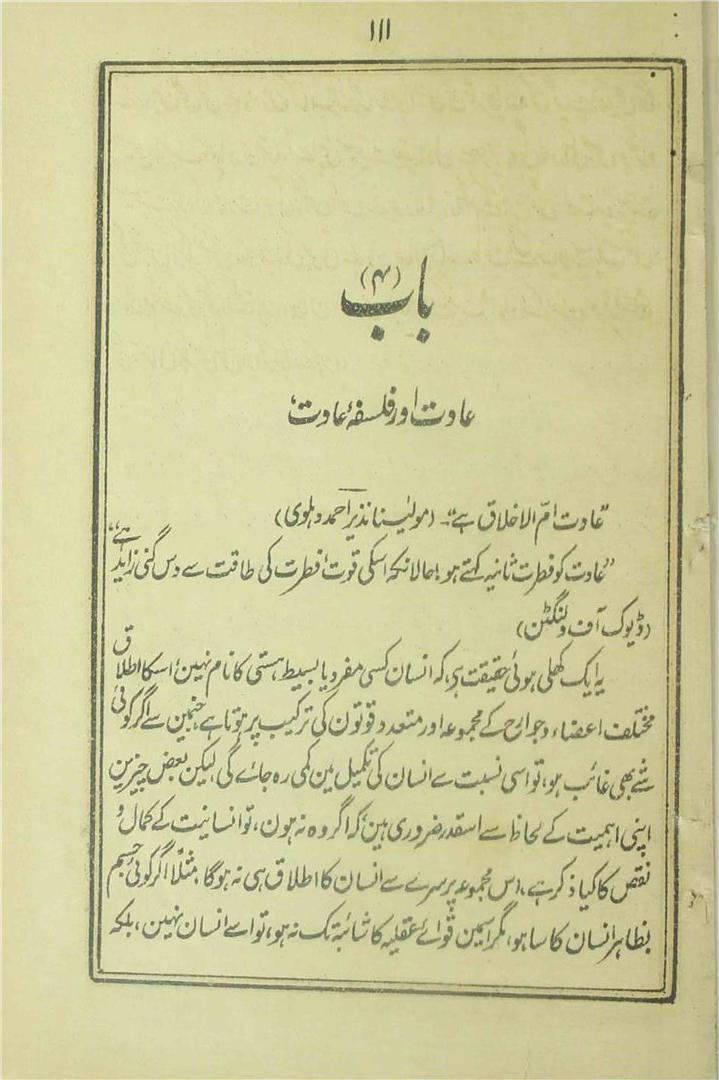 ۱۱۱
باب (۴)
عادت اور فلسفۂ عادت،
"عادت امّ الاخلاق ہے"۔ (مولیٰنا نذیر احمد دہلوی)
"عادت کو فطرت ثانیہ کہتے ہو! حالانکہ اسکی قوت، فطرت کی طاقت سے دس گنی زاید ہے"
(ڈیوک آف ولنگٹن)
یہ ایک کھلی ہوئی حقیقت ہی، کہ انسان کسی مفرد یا بسیط ہستی کا نام نہین، اسکا اطلاق
مختلف اعضاء و جوارح کے مجموعہ اور متعدد قوتون کی ترکیب پر ہوتا ہے، جنمین سے اگر کوئی
شے بھی غائب ہو، تو اسی نسبت سے انسان کی تکمیل مین کمی رہ جائے گی، لیکن بعض چیزین
اپنی اہمیت کے لحاظ سے اسقدر ضروری ہین، کہ اگر وہ نہ ہون، تو انسانیت کے کمال و
نقص کا کیا ذکر ہے، اس مجموعہ پر سرے سے انسان کا اطلاق ہی نہ ہوگا، مثلًا اگر کوئی جسم
بظاہر انسان کا سا ہو، مگر اسمین قوائے عقلیہ کا شائبہ تک نہ ہو، تو اسے انسان نہین، بلکہ